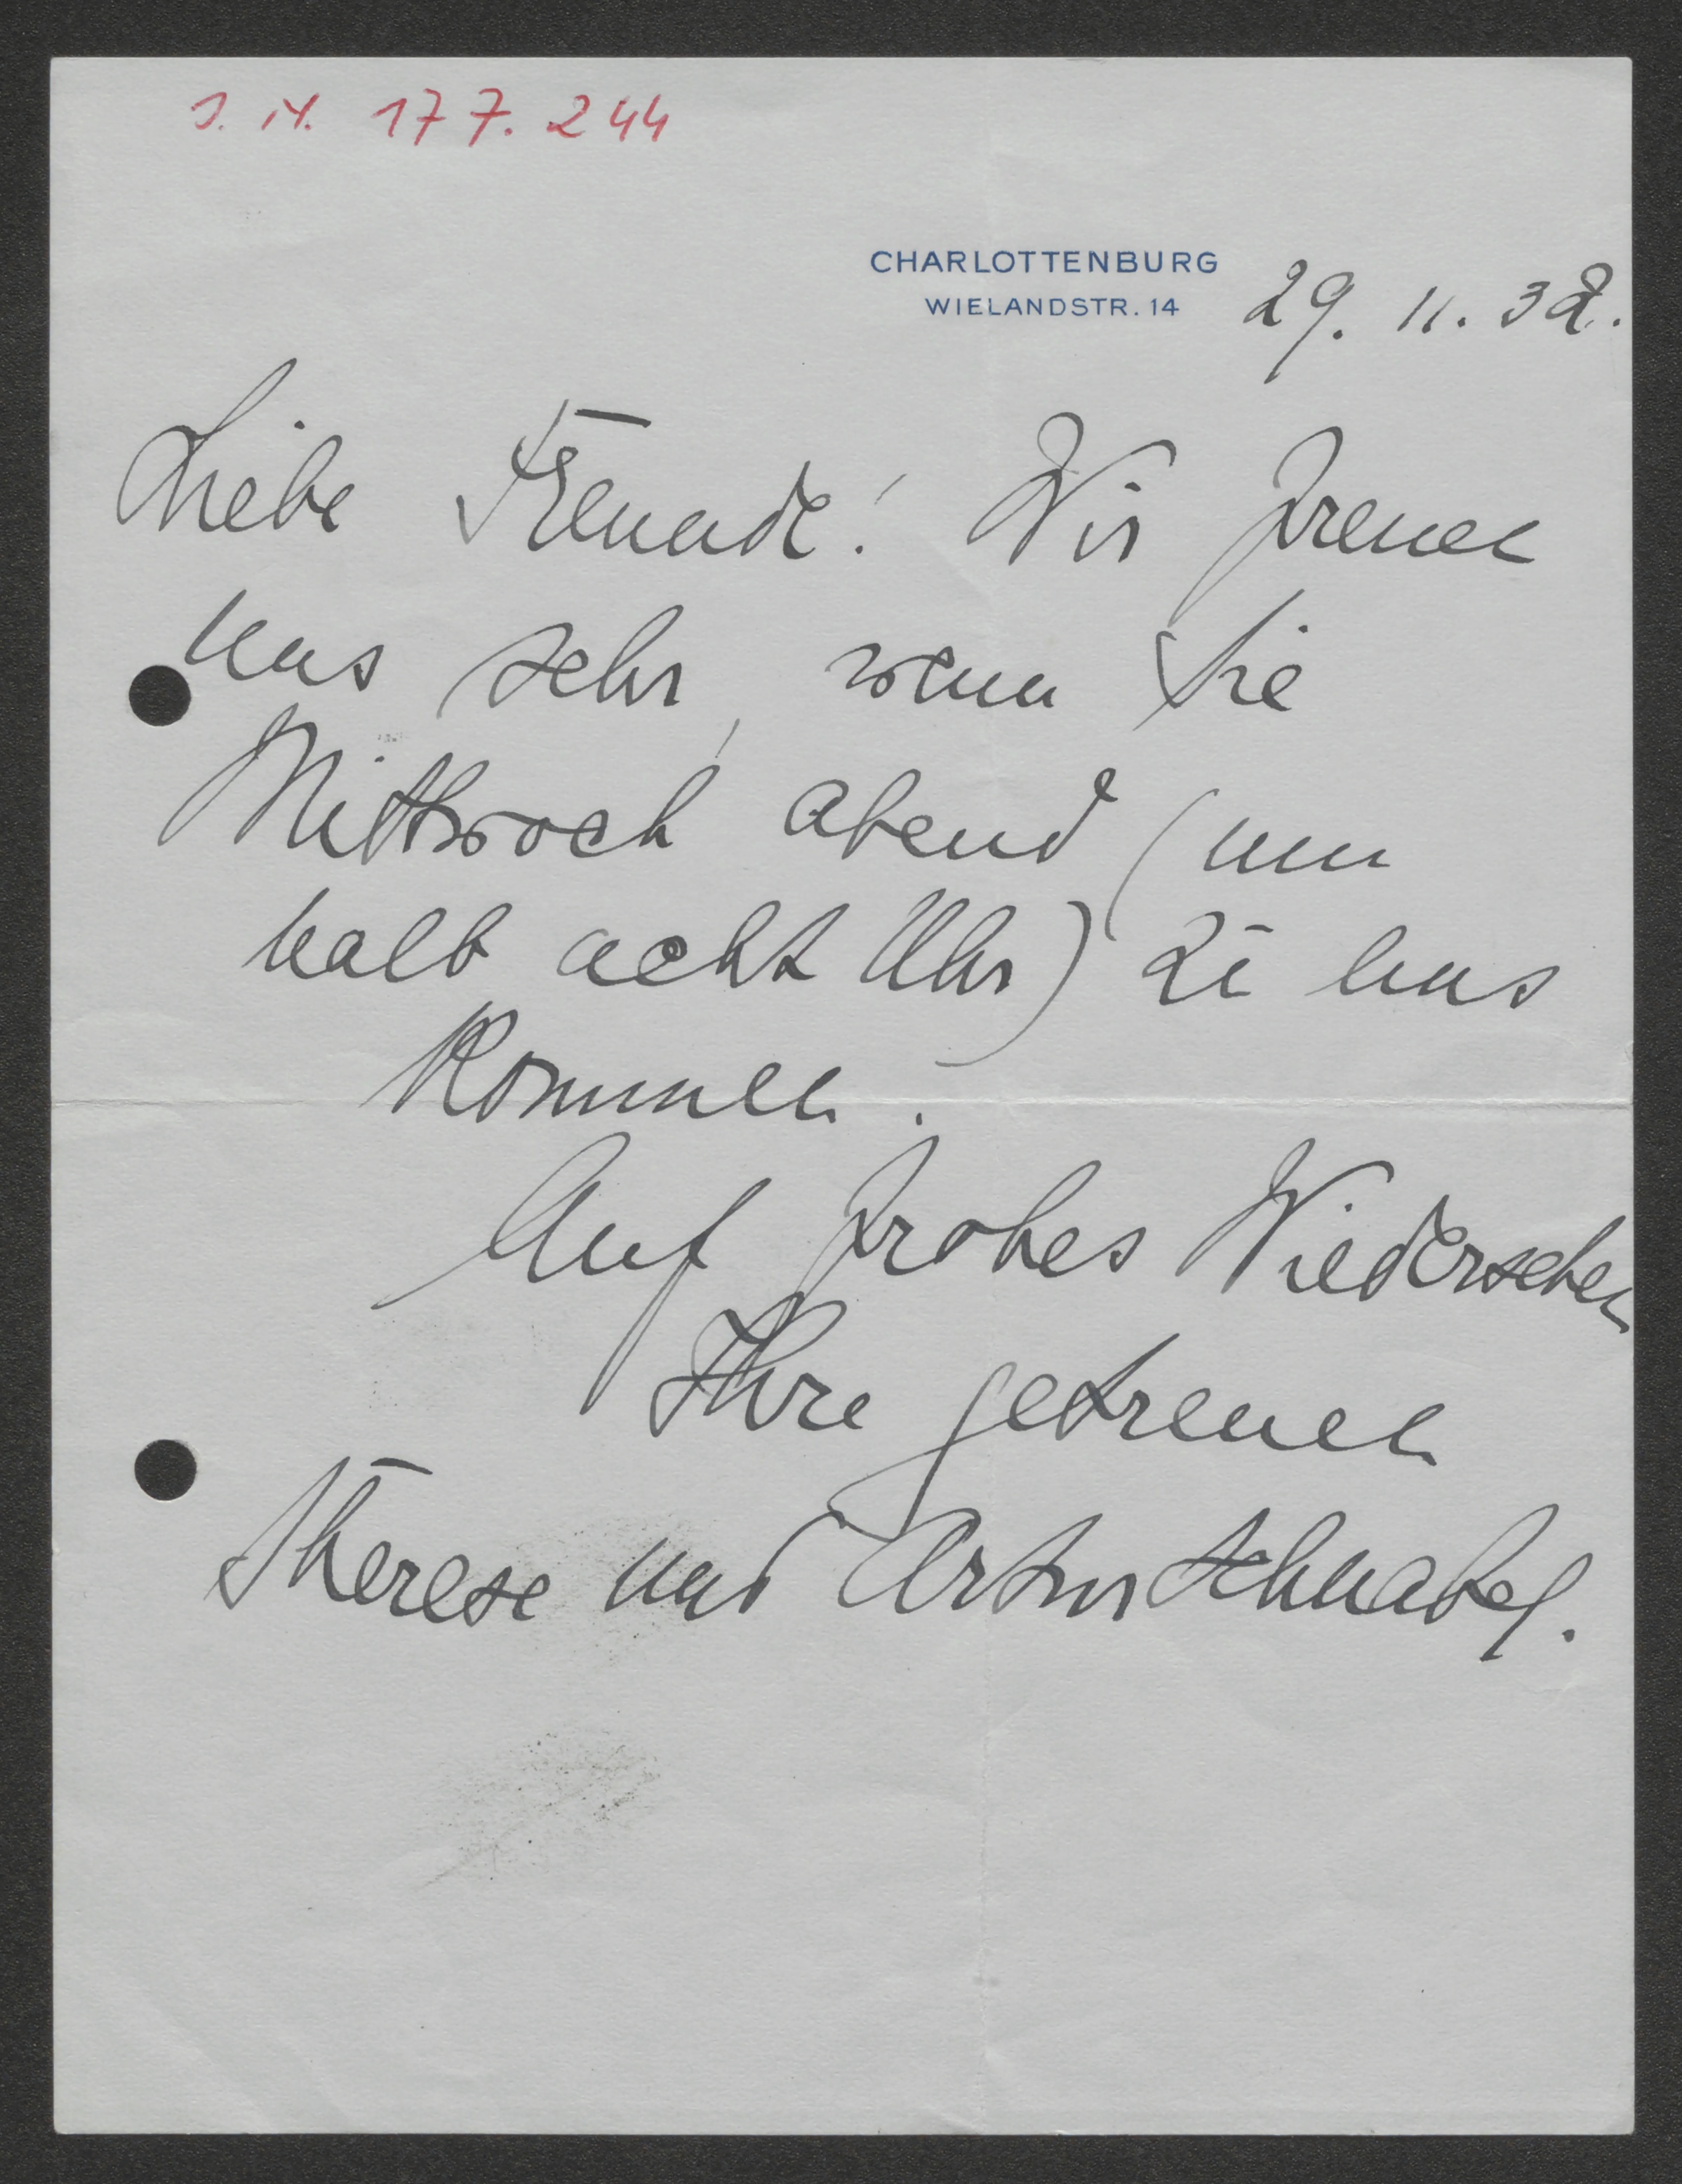 I. N. 177.244
CHARLOTTENBURG
WIELANDSTR. 14
29. 11. 32.
Liebe Freunde! Wir freuen
uns sehr, wenn Sie
Mittwoch abend (um
halb acht Uhr) zu uns
kommen.
Auf frohes Wiedersehen
Ihre getreuen
Therese und Artur Schnabel.